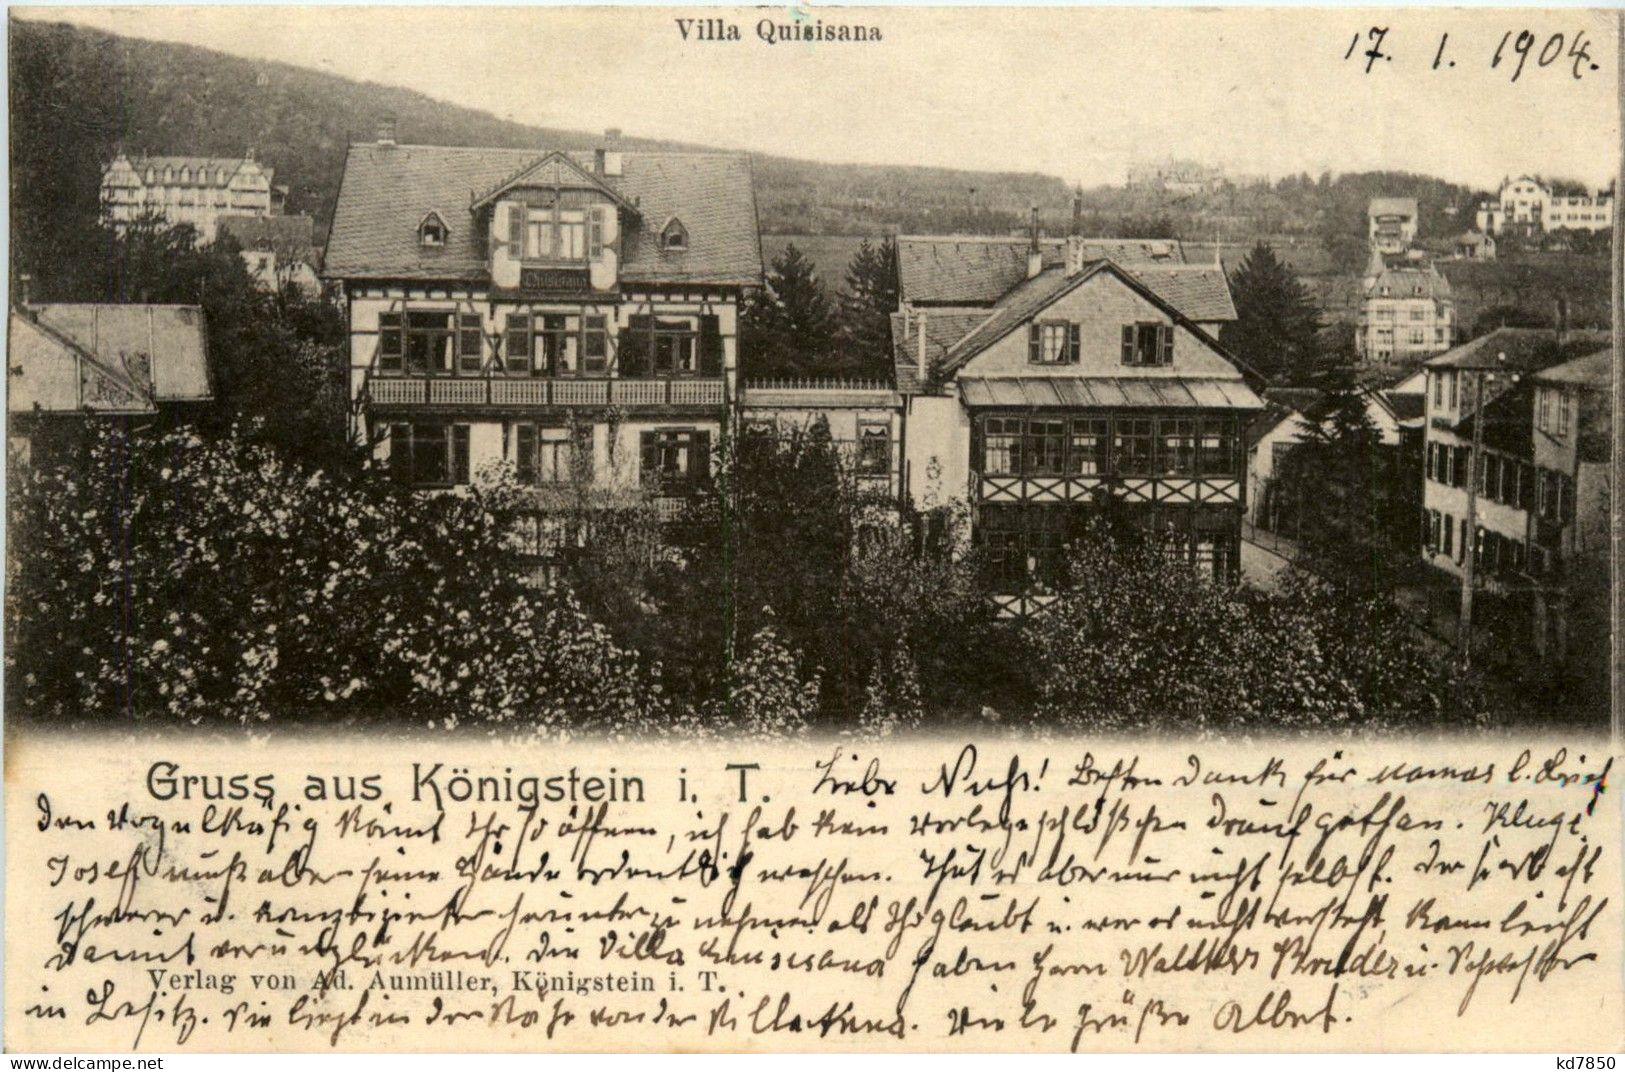 Villa Quisisana
17. 1. 1904.
Quisisana
Gruss aus Königstein i. T.
Liebe Besten Dank für Mamas l. Brief
den Vogelkäfig könnt Ihr so öffnen, ich hab kein Vorlegeschlößchen drauf gethan. Kluge
Josef muß aber seine Hände ordentlich waschen. Thut es aber nur nicht selbst. Der ist
schwerer u. herunter zu nehmen als Ihr glaubt u. wer es nicht versteht, kann leicht
damit verunglücken. Die Villa Quisisana haben Herrn Walthers Bruder u. Schwester
Verlag von Ad. Aumüller, Königstein i. T.
in Besitz. Sie liegt in der Nähe von der Villa Anna. Viele Grüße Albert.
kd7850